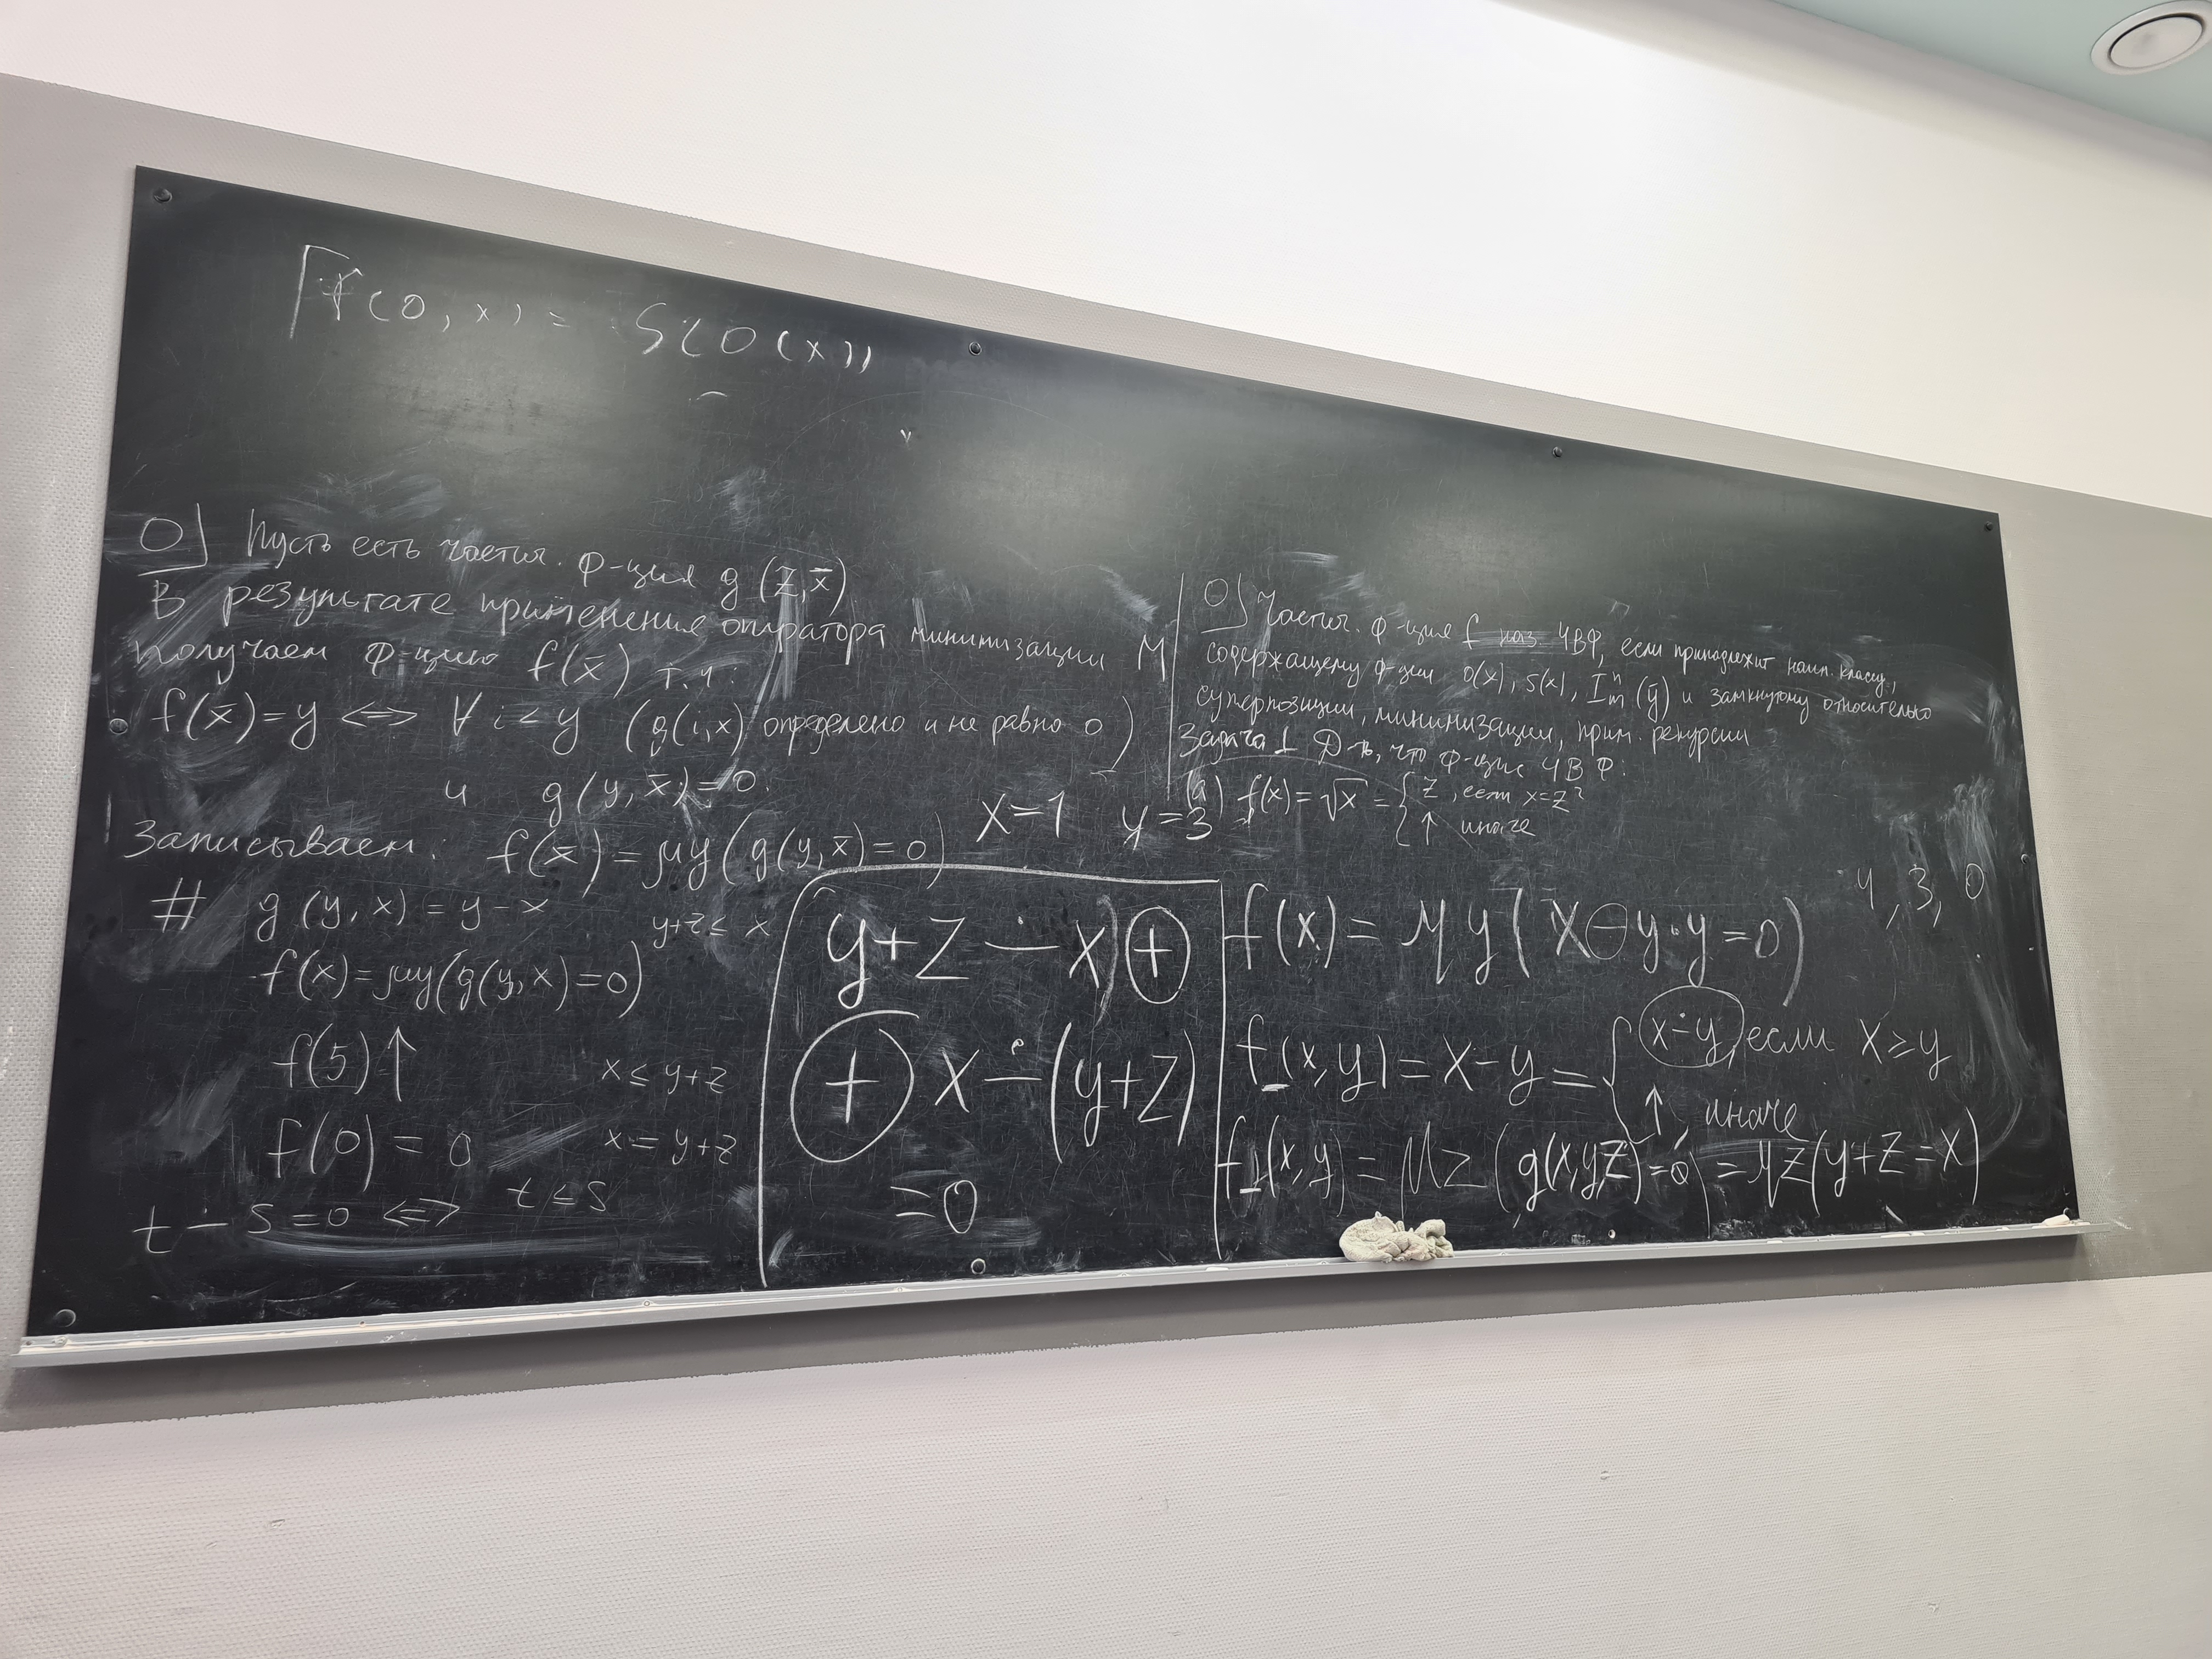 f(0, x) = S(O(x))
O] Пусть есть частич. ф-ция g (z, x̄)
В результате применения оператора минимизации M
получаем ф-цию f(x̄) т.ч:
f(x̄)=y ⟺ ∀ i < y (g(i,x) определено и не равно 0)
и g(y, x̄)=0.
Записываем: f(x̄) = μy(g(y,x̄)=0)
# g(y,x) = y-x
f(x)=μy(g(y,x)=0)
f(5)↑
f(0) = 0
t ∸ s = 0 ⟺ t ≤ s
y+z ≤ x
x ≤ y+z
x = y+z
x=1 y=3
y+z ∸ x) ⊕
⊕ x ∸ (y+z)
=0
O] Частич. ф-ция f наз ЧВФ, если принадлежит наим. классу,
содержащему ф-ции O(x), S(x), Iⁿₘ(ȳ) и замкнутому относительно
суперпозиции, минимизации, прим. рекурсии
Задача 1 Д-ть, что ф-ция ЧВФ:
(a) f(x) = √x = { z, если x=z²
↑ иначе
4, 3, 0
f(x) = μy(x ⊖ y·y = 0)
f₋(x,y) = x-y = { x∸y, если x ≥ y
↑, иначе
f₋(x,y) = μz(g(x,y,z)=0) = μz(y+z=x)